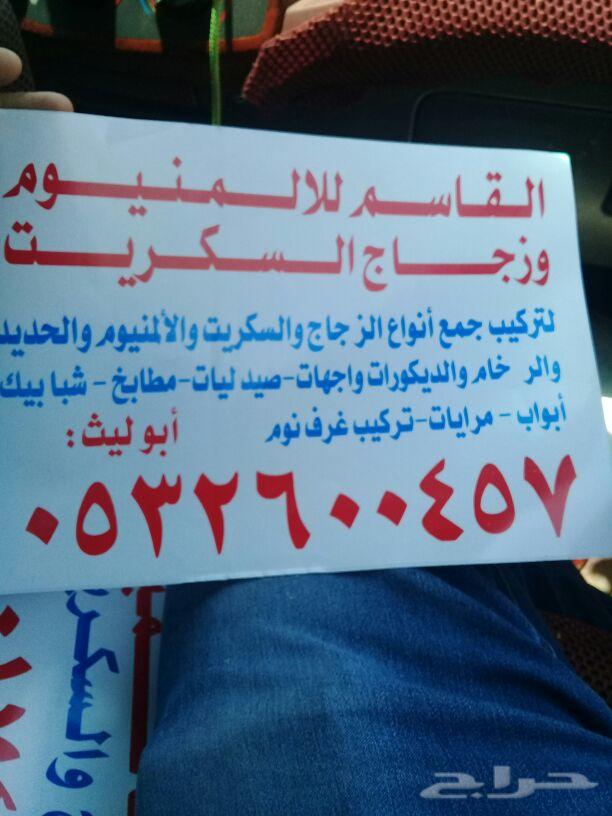 القاسم للالمنيوم
وزجاج السكريت
لتركيب جمع أنواع الزجاج والسكريت والألمنيوم والحديد
والر خام والديكورات واجهات-صيدليات-مطابخ-شبابيك
أبواب-مرايات-تركيب غرف نوم
أبوليث:
٠٥٣٢٦٠٠٤٥٧
والسكر
حراج